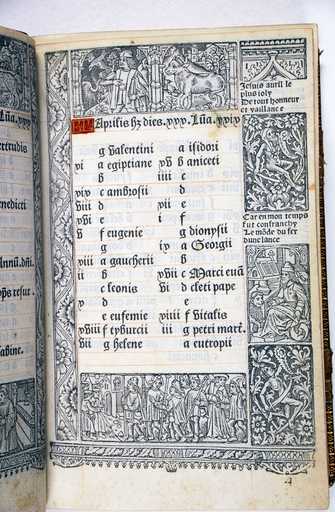 Lūa.xxx
Jesuis auril le
plus ioly
De tout honneur
et vaillance
KL Aprilis hȝ dies.xxx. Lūa.xxix
g valentini
a isidori
xi a egiptiane
xiii b aniceti
b
iiii e
xix c ambrosii
d
viii d
xii e
xvi e
i f
v f eugenie
g dionysii
g
ix a Georgii
xiii a gaucherii
b
ii b
xvii c Marci euā
c leonis
vi d cleti pape
x d
e
e eufemie
xiiii f vitalis
xviii f tyburcii
iii g petri mart.
vii g helene
a eutropii
Car en mon temps
fut confranchy
Le mōde du fer
dune lance